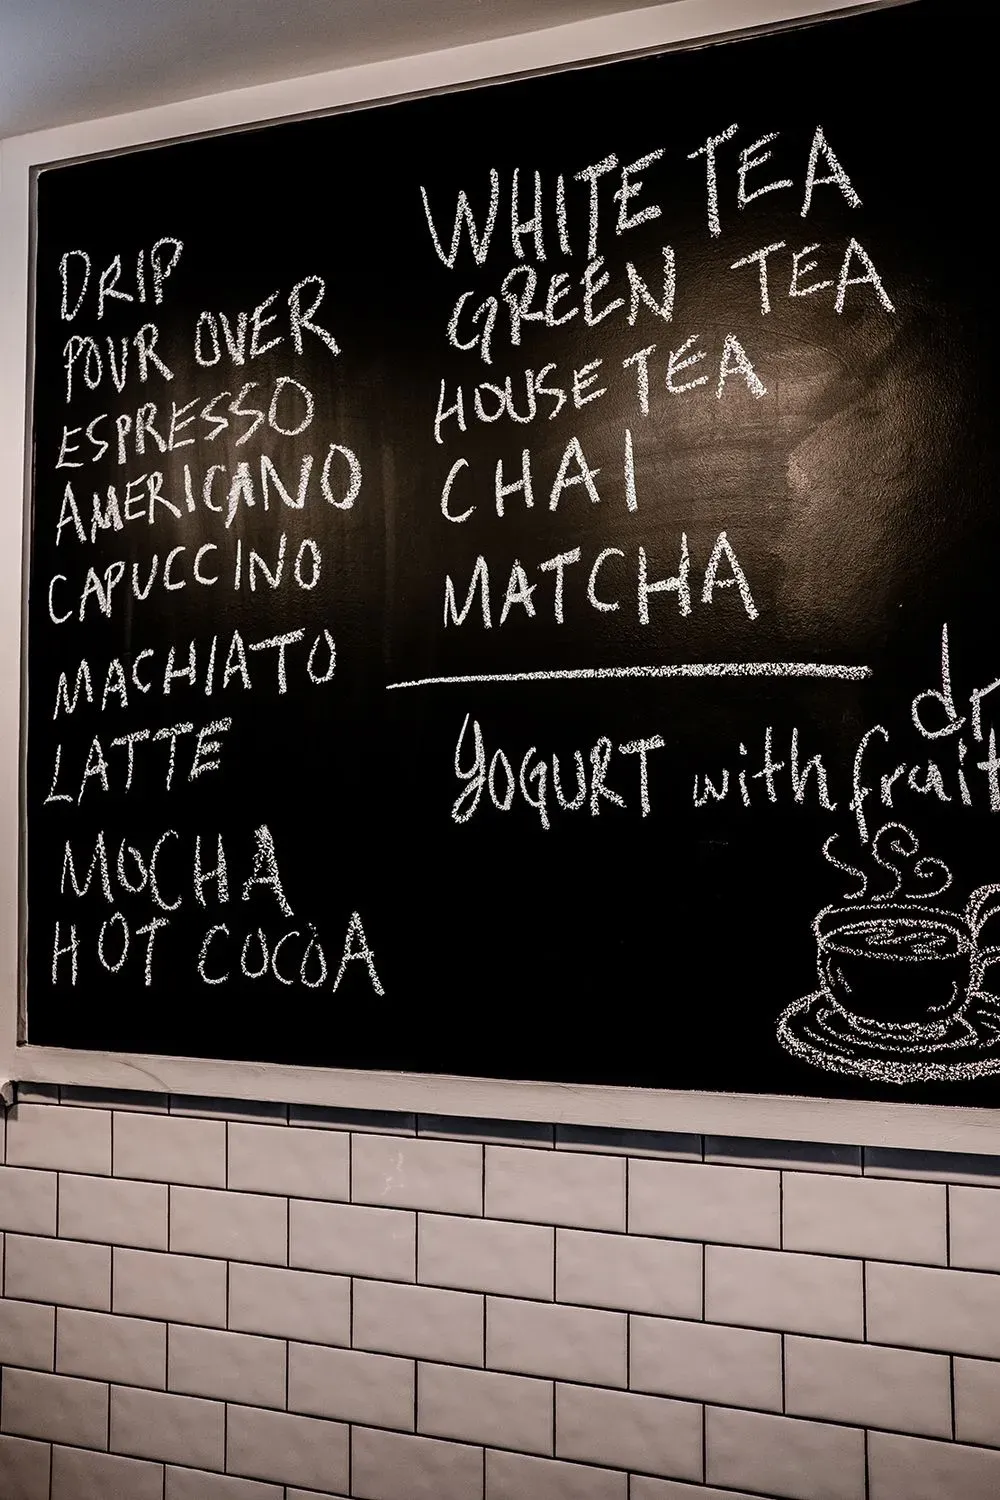 DRIP
POUR OVER
ESPRESSO
AMERICANO
CAPUCCINO
MACHIATO
LATTE
MOCHA
HOT COCOA
WHITE TEA
GREEN TEA
HOUSE TEA
CHAI
MATCHA
YOGURT with fruit